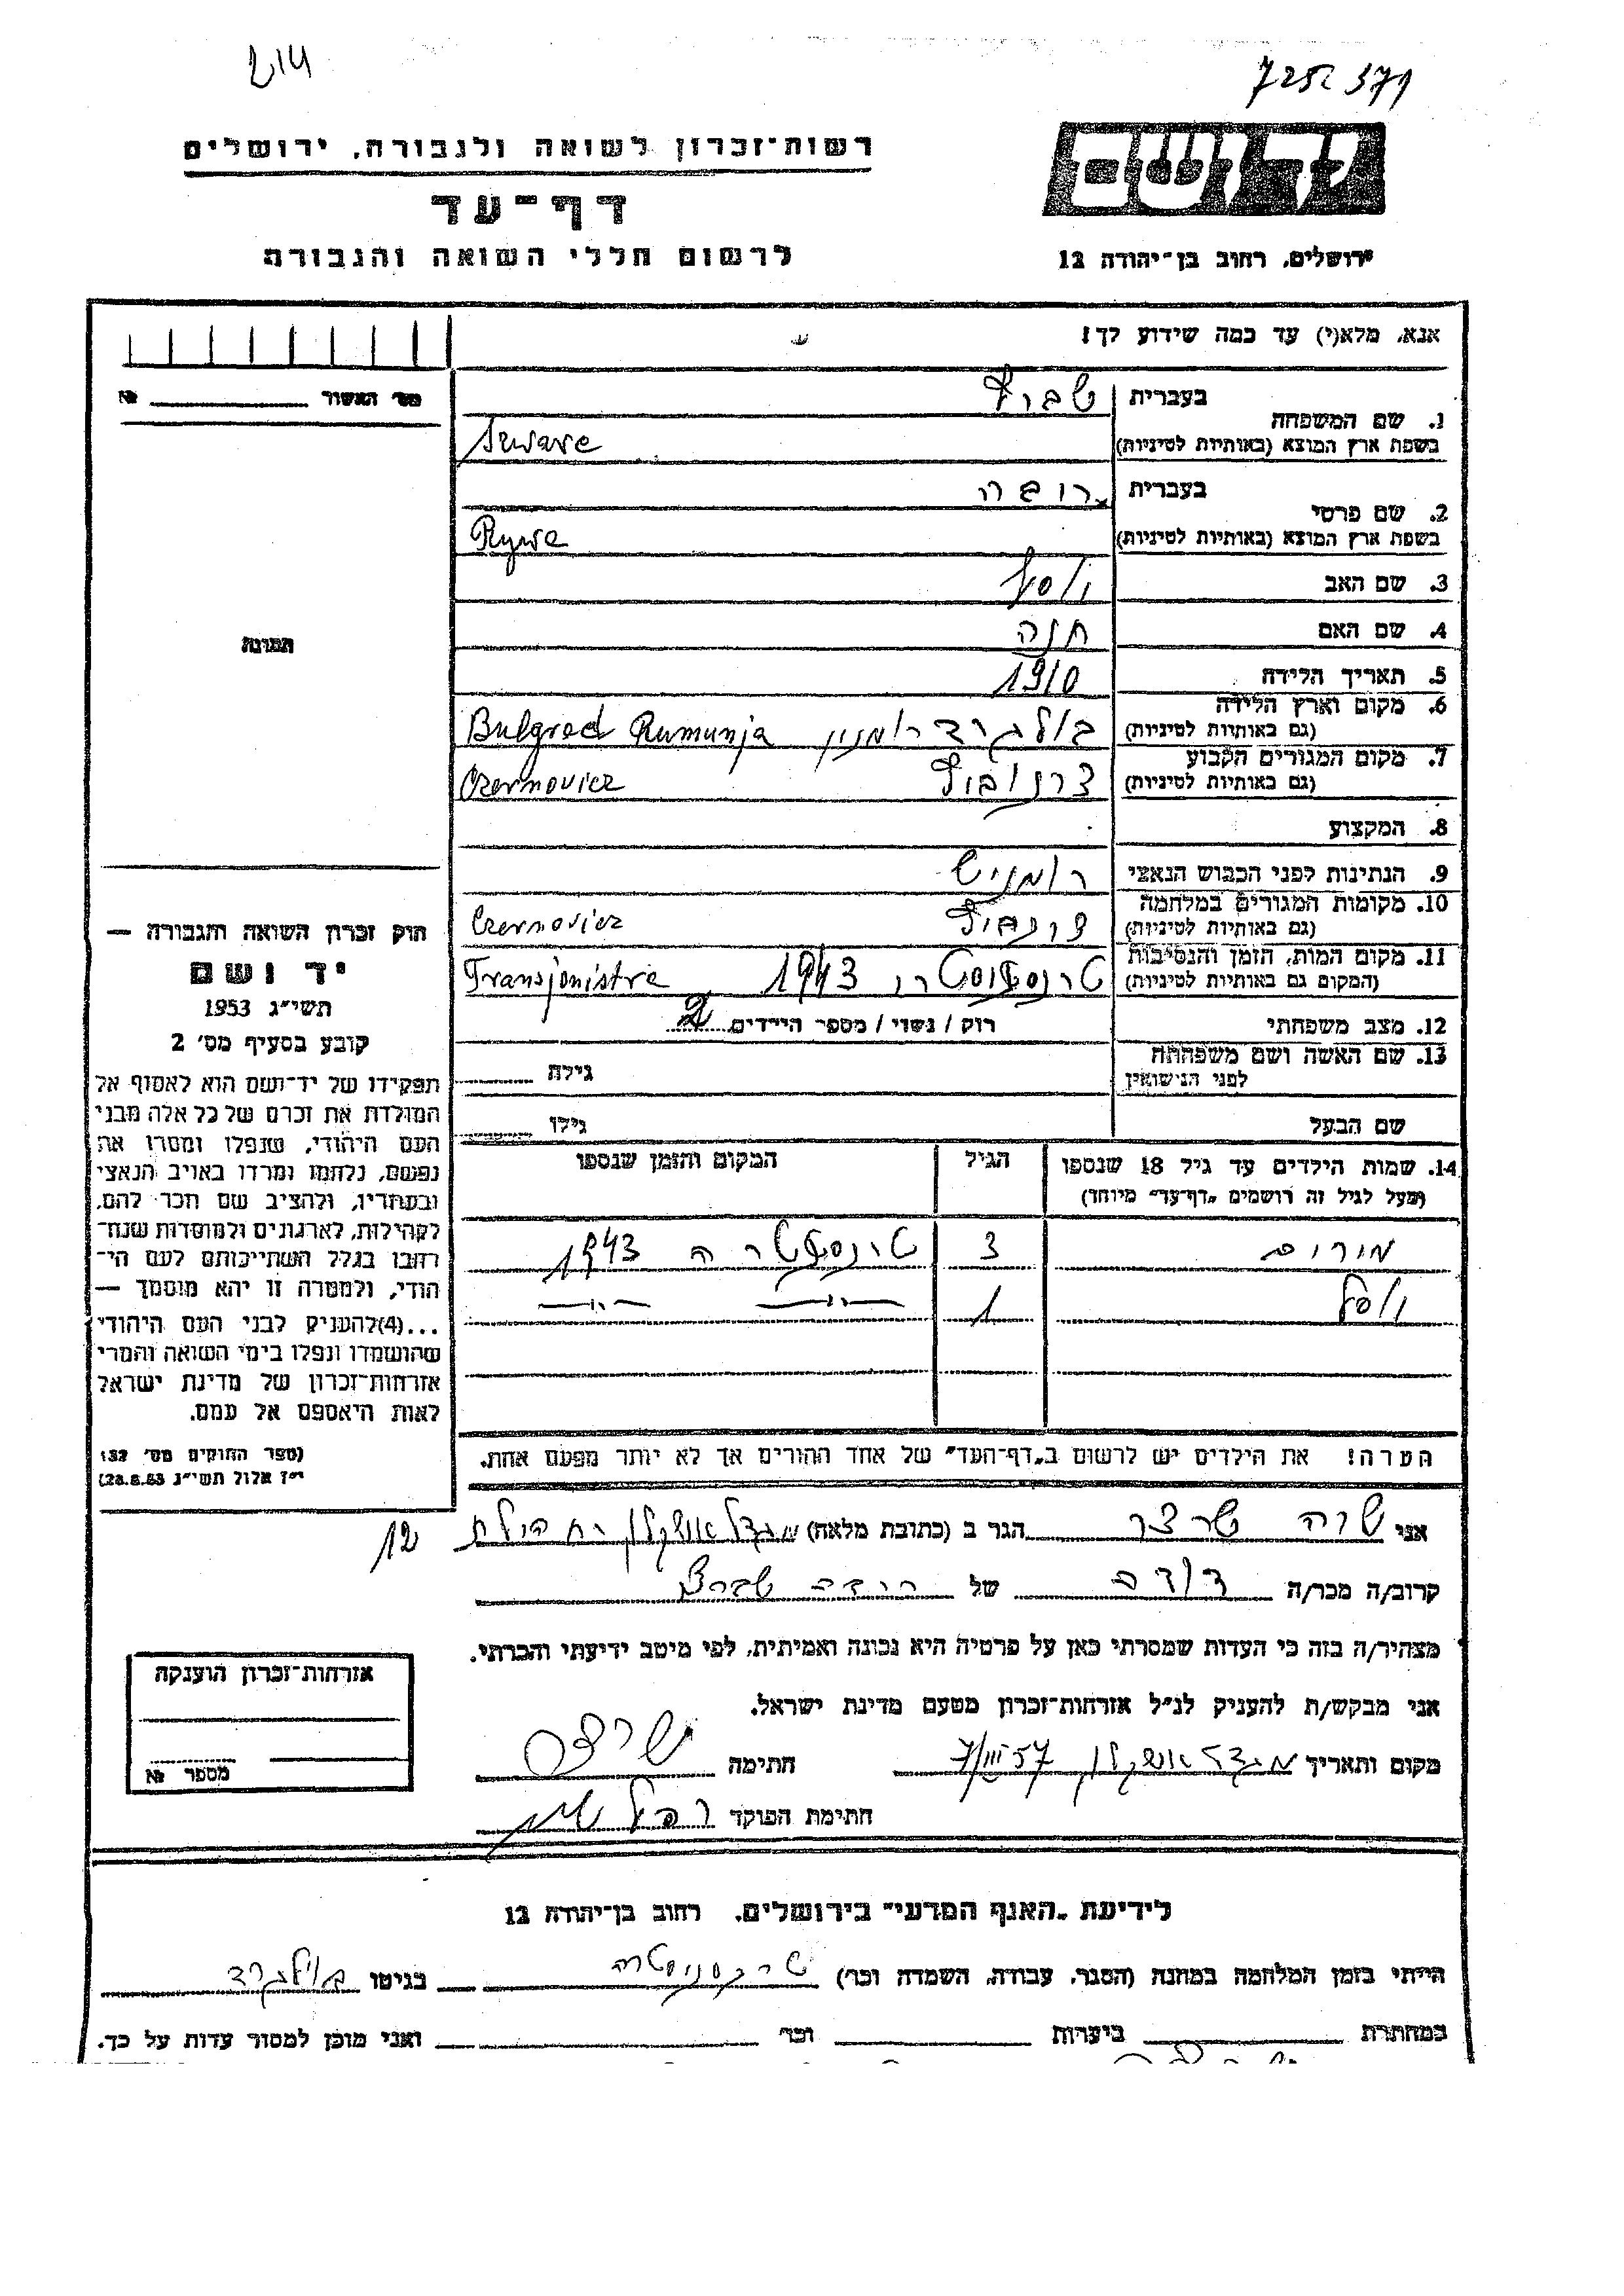 214
7252 371
רשות־זכרון לשואה ולגבורה, ירושלים
דף־עד
לרשום חללי השואה והגבורה
ירושלים, רחוב בן־יהודה 12
אנא, מלא(י) עד כמה שידוע לך!
מס׳ האשור №
1. שם המשפחה
בעברית
בשפת ארץ המוצא (באותיות לטיניות)
2. שם פרטי
בעברית
Rywa
בשפת ארץ המוצא (באותיות לטיניות)
3. שם האב
4. שם האם חנה
5. תאריך הלידה 1910
6. מקום וארץ הלידה
(גם באותיות לטיניות) בולגרד Bulgrad Rumunja
7. מקום המגורים הקבוע
(גם באותיות לטיניות) Czernovicz
8. המקצוע
9. הנתינות לפני הכבוש הנאצי
10. מקומות המגורים במלחמה
(גם באותיות לטיניות) Czernovicz
11. מקום המות, הזמן והנסיבות
(המקום גם באותיות לטיניות) 1943 Transjonistria
12. מצב משפחתי רוק / נשוי / מספר הילדים 2
13. שם האשה ושם משפחתה
לפני הנישואין גילה
שם הבעל גילו
14. שמות הילדים עד גיל 18 שנספו
(מעל לגיל זה רושמים „דף־עד״ מיוחד)
הגיל
המקום והזמן שנספו
מורים 3 1943
1 —״— —״—
הערה! את הילדים יש לרשום ב„דף־העד״ של אחד ההורים אך לא יותר מפעם אחת.
תמונה
חוק זכרון השואה והגבורה —
יד ושם
תשי״ג 1953
קובע בסעיף מס׳ 2
תפקידו של יד־ושם הוא לאסוף אל
המולדת את זכרם של כל אלה מבני
העם היהודי, שנפלו ומסרו את
נפשם, נלחמו ומרדו באויב הנאצי
ובעוזריו, ולהציב שם וזכר להם,
לקהילות, לארגונים ולמוסדות שנח־
רבו בגלל השתייכותם לעם הי־
הודי, ולמטרה זו יהא מוסמך —
...(4)להעניק לבני העם היהודי
שהושמדו ונפלו בימי השואה והמרי
אזרחות־זכרון של מדינת ישראל
לאות היאספם אל עמם.
(ספר החוקים מס׳ 132
י״ז אלול תשי״ג 28.8.53)
אני שרה שרצר הגר ב (כתובת מלאה) מגדל אשקלון 12
קרוב/ה מכר/ה דודה של
מצהיר/ה בזה כי העדות שמסרתי כאן על פרטיה היא נכונה ואמיתית, לפי מיטב ידיעתי והכרתי.
אני מבקש/ת להעניק לנ״ל אזרחות־זכרון מטעם מדינת ישראל.
מקום ותאריך מגדל אשקלון 7/III 57 חתימה
חתימת הפוקד
אזרחות־זכרון הוענקה
מספר №
לידיעת „האגף המדעי״ בירושלים, רחוב בן־יהודה 12
הייתי בזמן המלחמה במחנה (הסגר, עבודה, השמדה וכר) טרנסניסטריה בגיטו
במחתרת ביערות וכר ואני מוכן למסור עדות על כך.